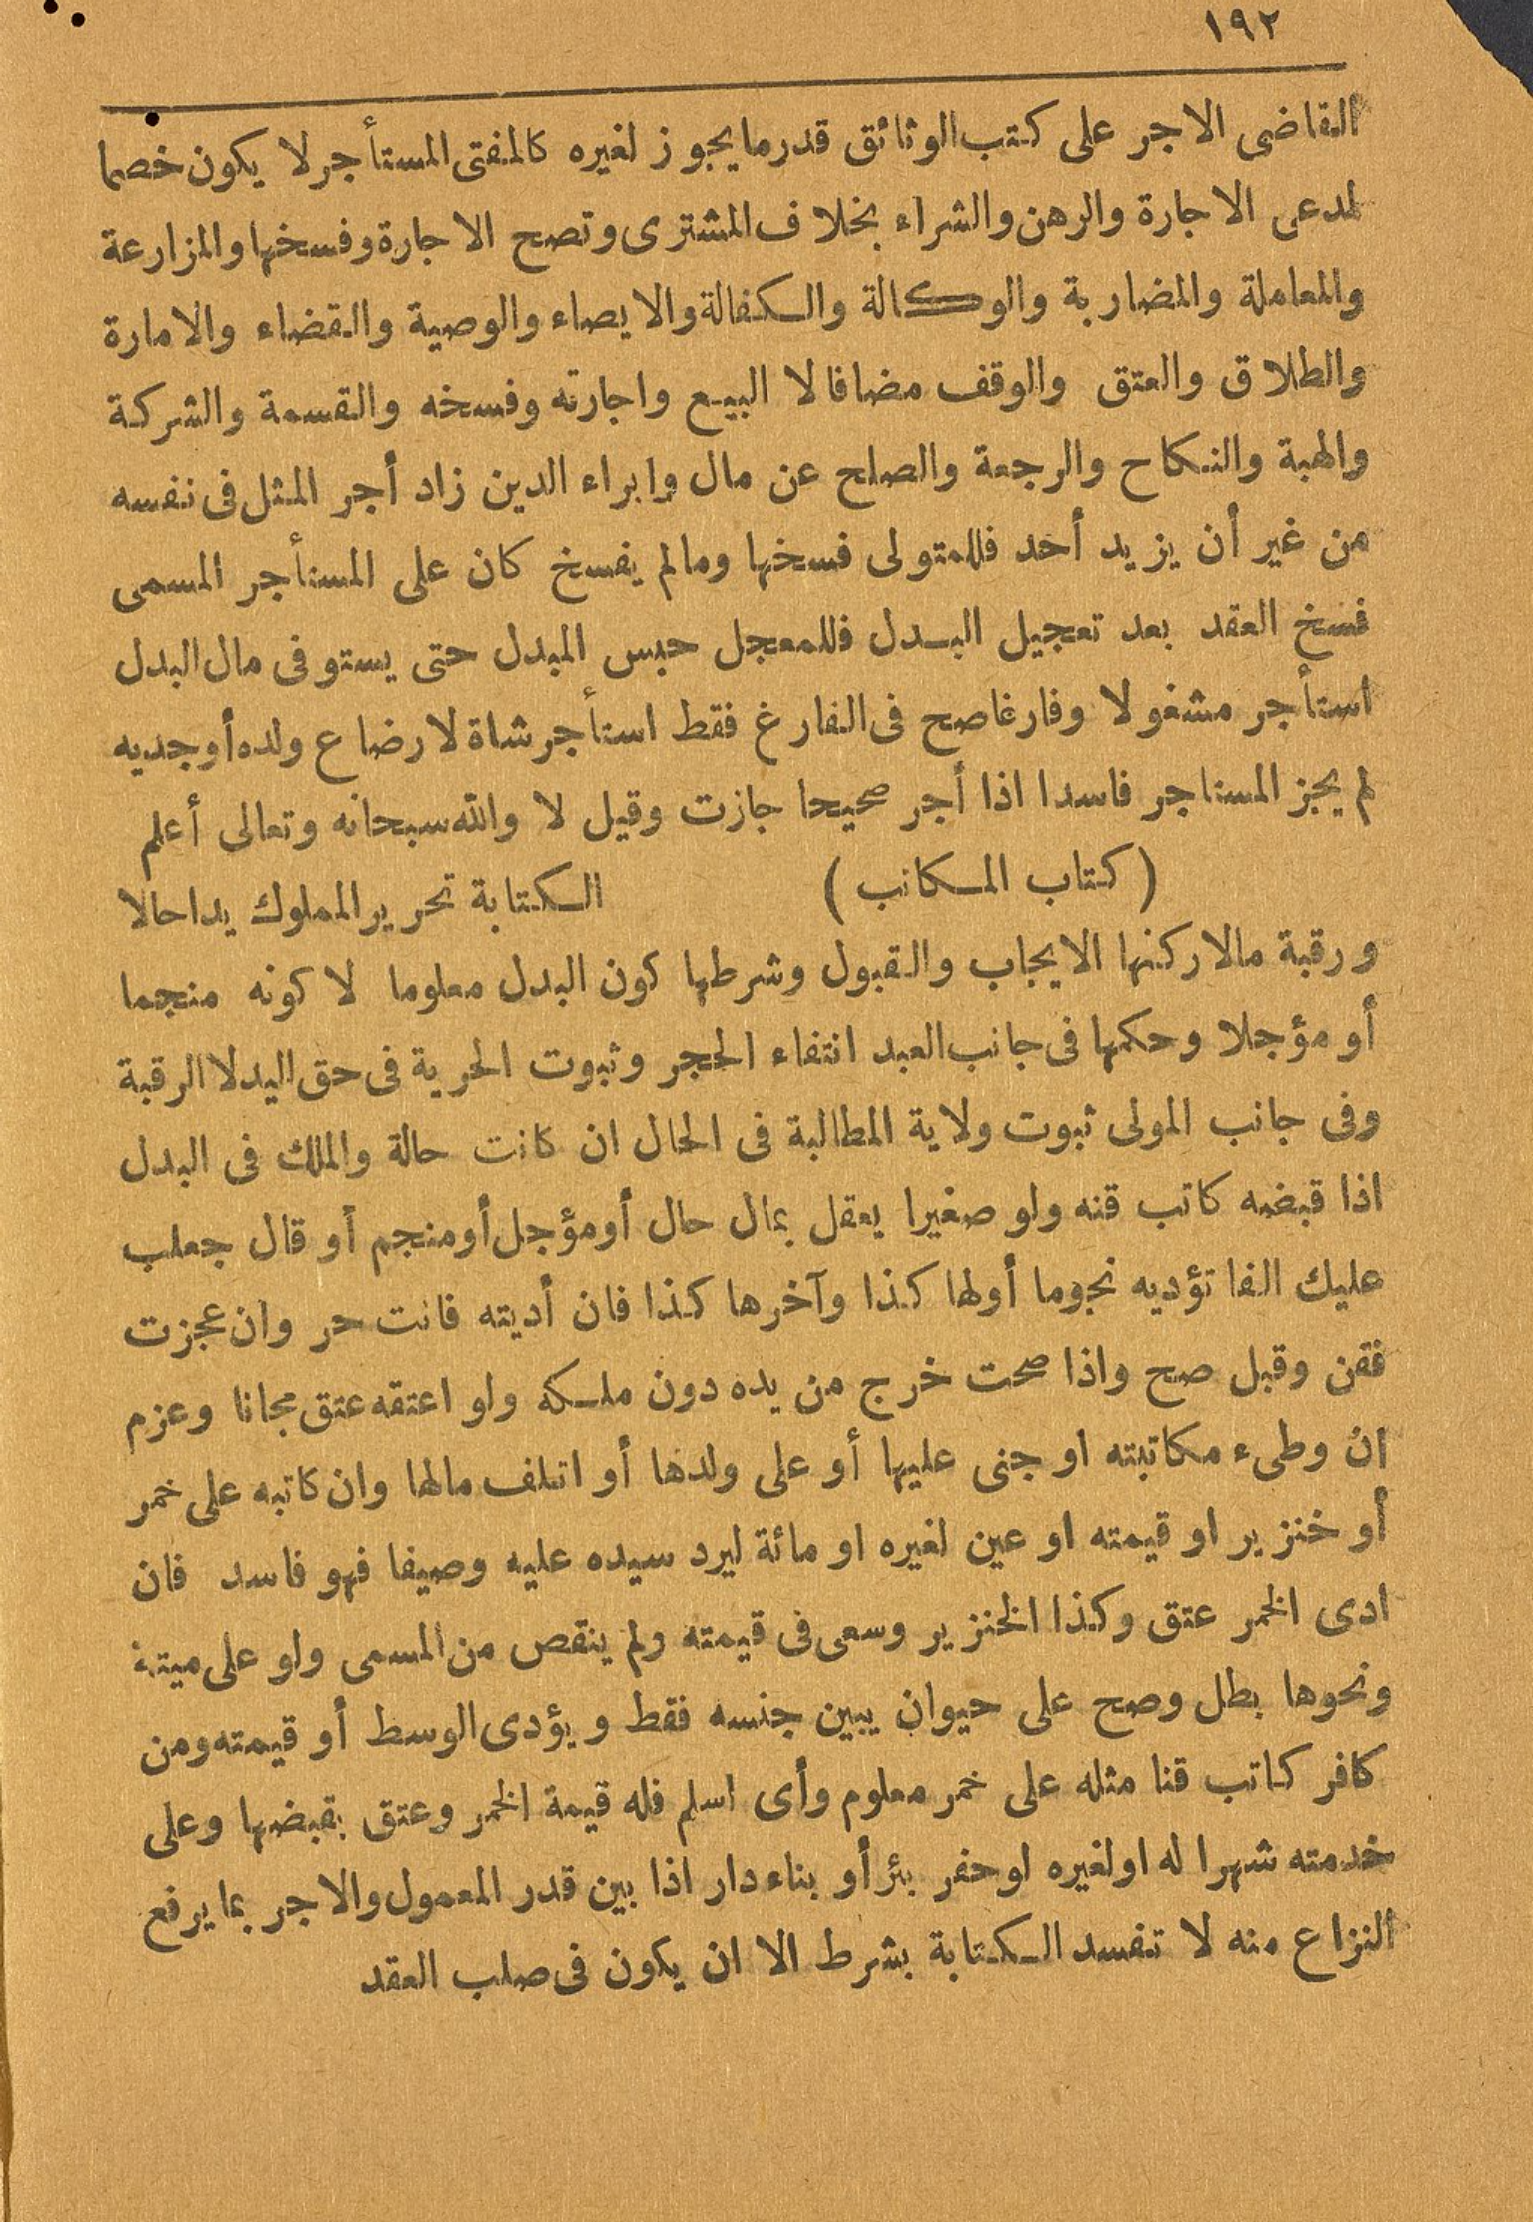 ١٩٢
القاضى الاجر على كتب الوثائق قدر ما يجوز لغيره كالمفتى المستأجر لا يكون خصما
لمدعى الاجارة والرهن والشراء بخلاف المشترى وتصح الاجارة وفسخها والمزارعة
والمعاملة والمضاربة والوكالة والكفالة والايصاء والوصية والقضاء والامارة
والطلاق والعتق والوقف مضافا لا البيع واجارته وفسخه والقسمة والشركة
والهبة والنكاح والرجعة والصلح عن مال وابراء الدين زاد أجر المثل فى نفسه
من غير أن يزيد أحد فللمتولى فسخها ومالم يفسخ كان على المستأجر المسمى
فسخ العقد بعد تعجيل البدل فللمعجل حبس المبدل حتى يستوفى مال البدل
استأجر مشغولا وفارغا صح فى الفارغ فقط استأجر شاة لارضاع ولده أو جديه
لم يجز المستاجر فاسدا اذا أجر صحيحا جازت وقيل لا والله سبحانه وتعالى أعلم
(كتاب المكاتب) الكتابة تحرير المملوك يدا حالا
ورقبة مالا ركنها الايجاب والقبول وشرطها كون البدل معلوما لا كونه منجما
أو مؤجلا وحكمها فى جانب العبد انتفاء الحجر وثبوت الحرية فى حق اليد لا الرقبة
وفى جانب المولى ثبوت ولاية المطالبة فى الحال ان كانت حالة والملك فى البدل
اذا قبضه كاتب قنه ولو صغيرا يعقل بمال حال أو مؤجل أو منجم أو قال جعلت
عليك الفا تؤديه نجوما أولها كذا وآخرها كذا فان أديته فانت حر وان عجزت
فقن وقبل صح واذا صحت خرج من يده دون ملكه ولو اعتقه عتق مجانا وعزم
ان وطىء مكاتبته او جنى عليها أو على ولدها أو اتلف مالها وان كاتبه على خمر
أو خنزير او قيمته او عين لغيره او مائة ليرد سيده عليه وصيفا فهو فاسد فان
ادى الخمر عتق وكذا الخنزير وسعى فى قيمته ولم ينقص من المسمى ولو على ميتة
ونحوها بطل وصح على حيوان يبين جنسه فقط ويؤدى الوسط أو قيمته ومن
كافر كاتب قنا مثله على خمر معلوم وأى اسلم فله قيمة الخمر وعتق بقبضها وعلى
خدمته شهرا له او لغيره او حفر بئر أو بناء دار اذا بين قدر المعمول والاجر بما يرفع
النزاع منه لا تفسد الكتابة بشرط الا ان يكون فى صلب العقد